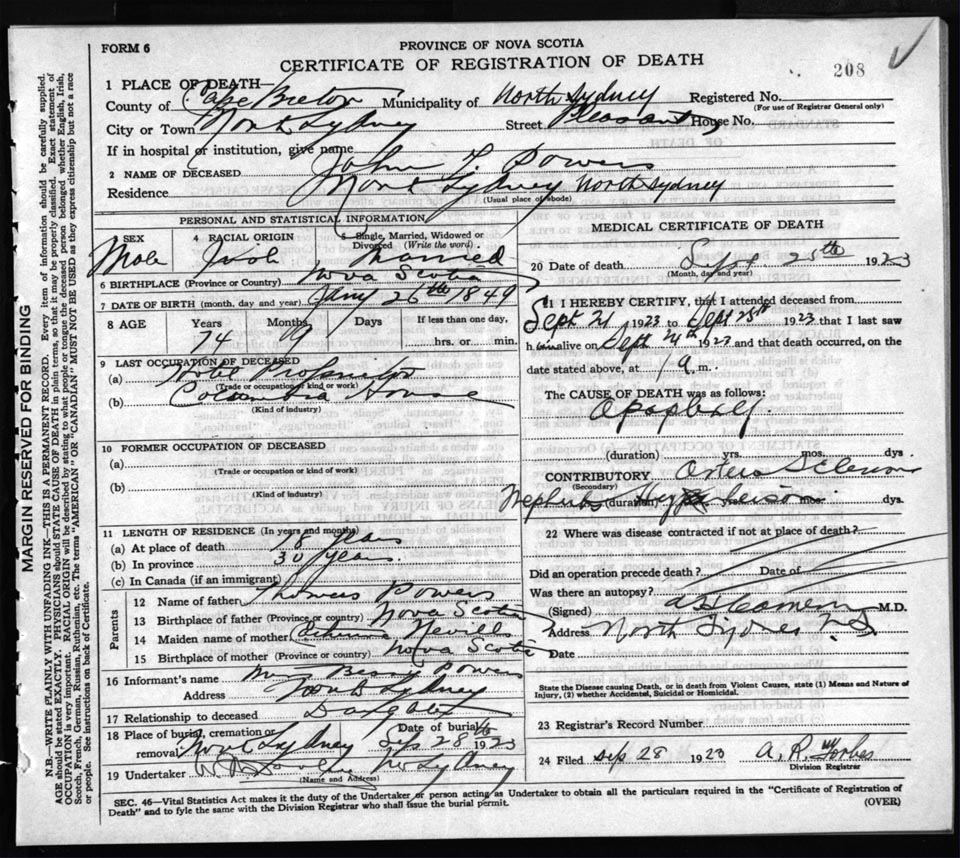 FORM 6
PROVINCE OF NOVA SCOTIA
CERTIFICATE OF REGISTRATION OF DEATH
208
1 PLACE OF DEATH—
County of Cape Breton Municipality of North Sydney Registered No.
(For use of Registrar General only)
City or Town North Sydney Street Pleasant House No.
If in hospital or institution, give name
2 NAME OF DECEASED John T. Powers
Residence North Sydney North Sydney
(Usual place of abode)
PERSONAL AND STATISTICAL INFORMATION
3 SEX 4 RACIAL ORIGIN 5 Single, Married, Widowed or Divorced (Write the word)
Male Irish Married
6 BIRTHPLACE (Province or Country) Nova Scotia
7 DATE OF BIRTH (month, day and year) Jany 26th 1849
8 AGE Years Months Days If less than one day,
74 9 hrs. or min.
9 LAST OCCUPATION OF DECEASED
(a) Hotel Proprietor
(Trade or occupation or kind or work)
(b) Columbia House
(Kind of industry)
10 FORMER OCCUPATION OF DECEASED
(a)
(Trade or occupation or kind or work)
(b)
(Kind of industry)
11 LENGTH OF RESIDENCE (In years and months)
(a) At place of death years
(b) In province 30 years
(c) In Canada (if an immigrant)
Parents
12 Name of father Thomas Powers
13 Birthplace of father (Province or country) Nova Scotia
14 Maiden name of mother
15 Birthplace of mother (Province or country) Nova Scotia
16 Informant's name Powers
Address North Sydney
17 Relationship to deceased Daughter
18 Place of burial, cremation or removal North Sydney Date of burial Sep 28th 1923
19 Undertaker N. Sydney
(Name and Address)
MEDICAL CERTIFICATE OF DEATH
20 Date of death Sept 25th 1923
(Month, day and year)
21 I HEREBY CERTIFY, that I attended deceased from
Sept 21 1923 to Sept 25th 1923 that I last saw
h im alive on Sept 1923 and that death occurred, on the
date stated above, at 1 a m.
The CAUSE OF DEATH was as follows:
Apoplexy
(duration) yrs. mos. dys
CONTRIBUTORY Arterio Sclerosis
(Secondary)
Nephritis (duration) yrs. mos. dys.
22 Where was disease contracted if not at place of death?
Did an operation precede death? Date of
Was there an autopsy?
(Signed) M.D.
Address North Sydney N S
Date
State the Disease causing Death, or in death from Violent Causes, state (1) Means and Nature of Injury, (2) whether Accidental, Suicidal or Homicidal.
23 Registrar's Record Number
24 Filed Sep 28 1923 A. R. Forbes
Division Registrar
SEC. 46—Vital Statistics Act makes it the duty of the Undertaker or person acting as Undertaker to obtain all the particulars required in the "Certificate of Registration of
Death" and to fyle the same with the Division Registrar who shall issue the burial permit.
(OVER)
MARGIN RESERVED FOR BINDING
N.B.—WRITE PLAINLY WITH UNFADING INK—THIS IS A PERMANENT RECORD. Every item of information should be carefully supplied.
AGE should be stated EXACTLY. PHYSICIANS should STATE CAUSE OF DEATH in plain terms, so that it may be properly classified. Exact statement of
OCCUPATION is very important. RACIAL ORIGIN will be described by stating to what people or tongue the deceased person belonged whether English, Irish,
Scotch, French, German, Russian, Ruthenian, etc. The terms "AMERICAN" OR "CANADIAN" MUST NOT BE USED as they express citizenship but not a race
or people. See instructions on back of Certificate.